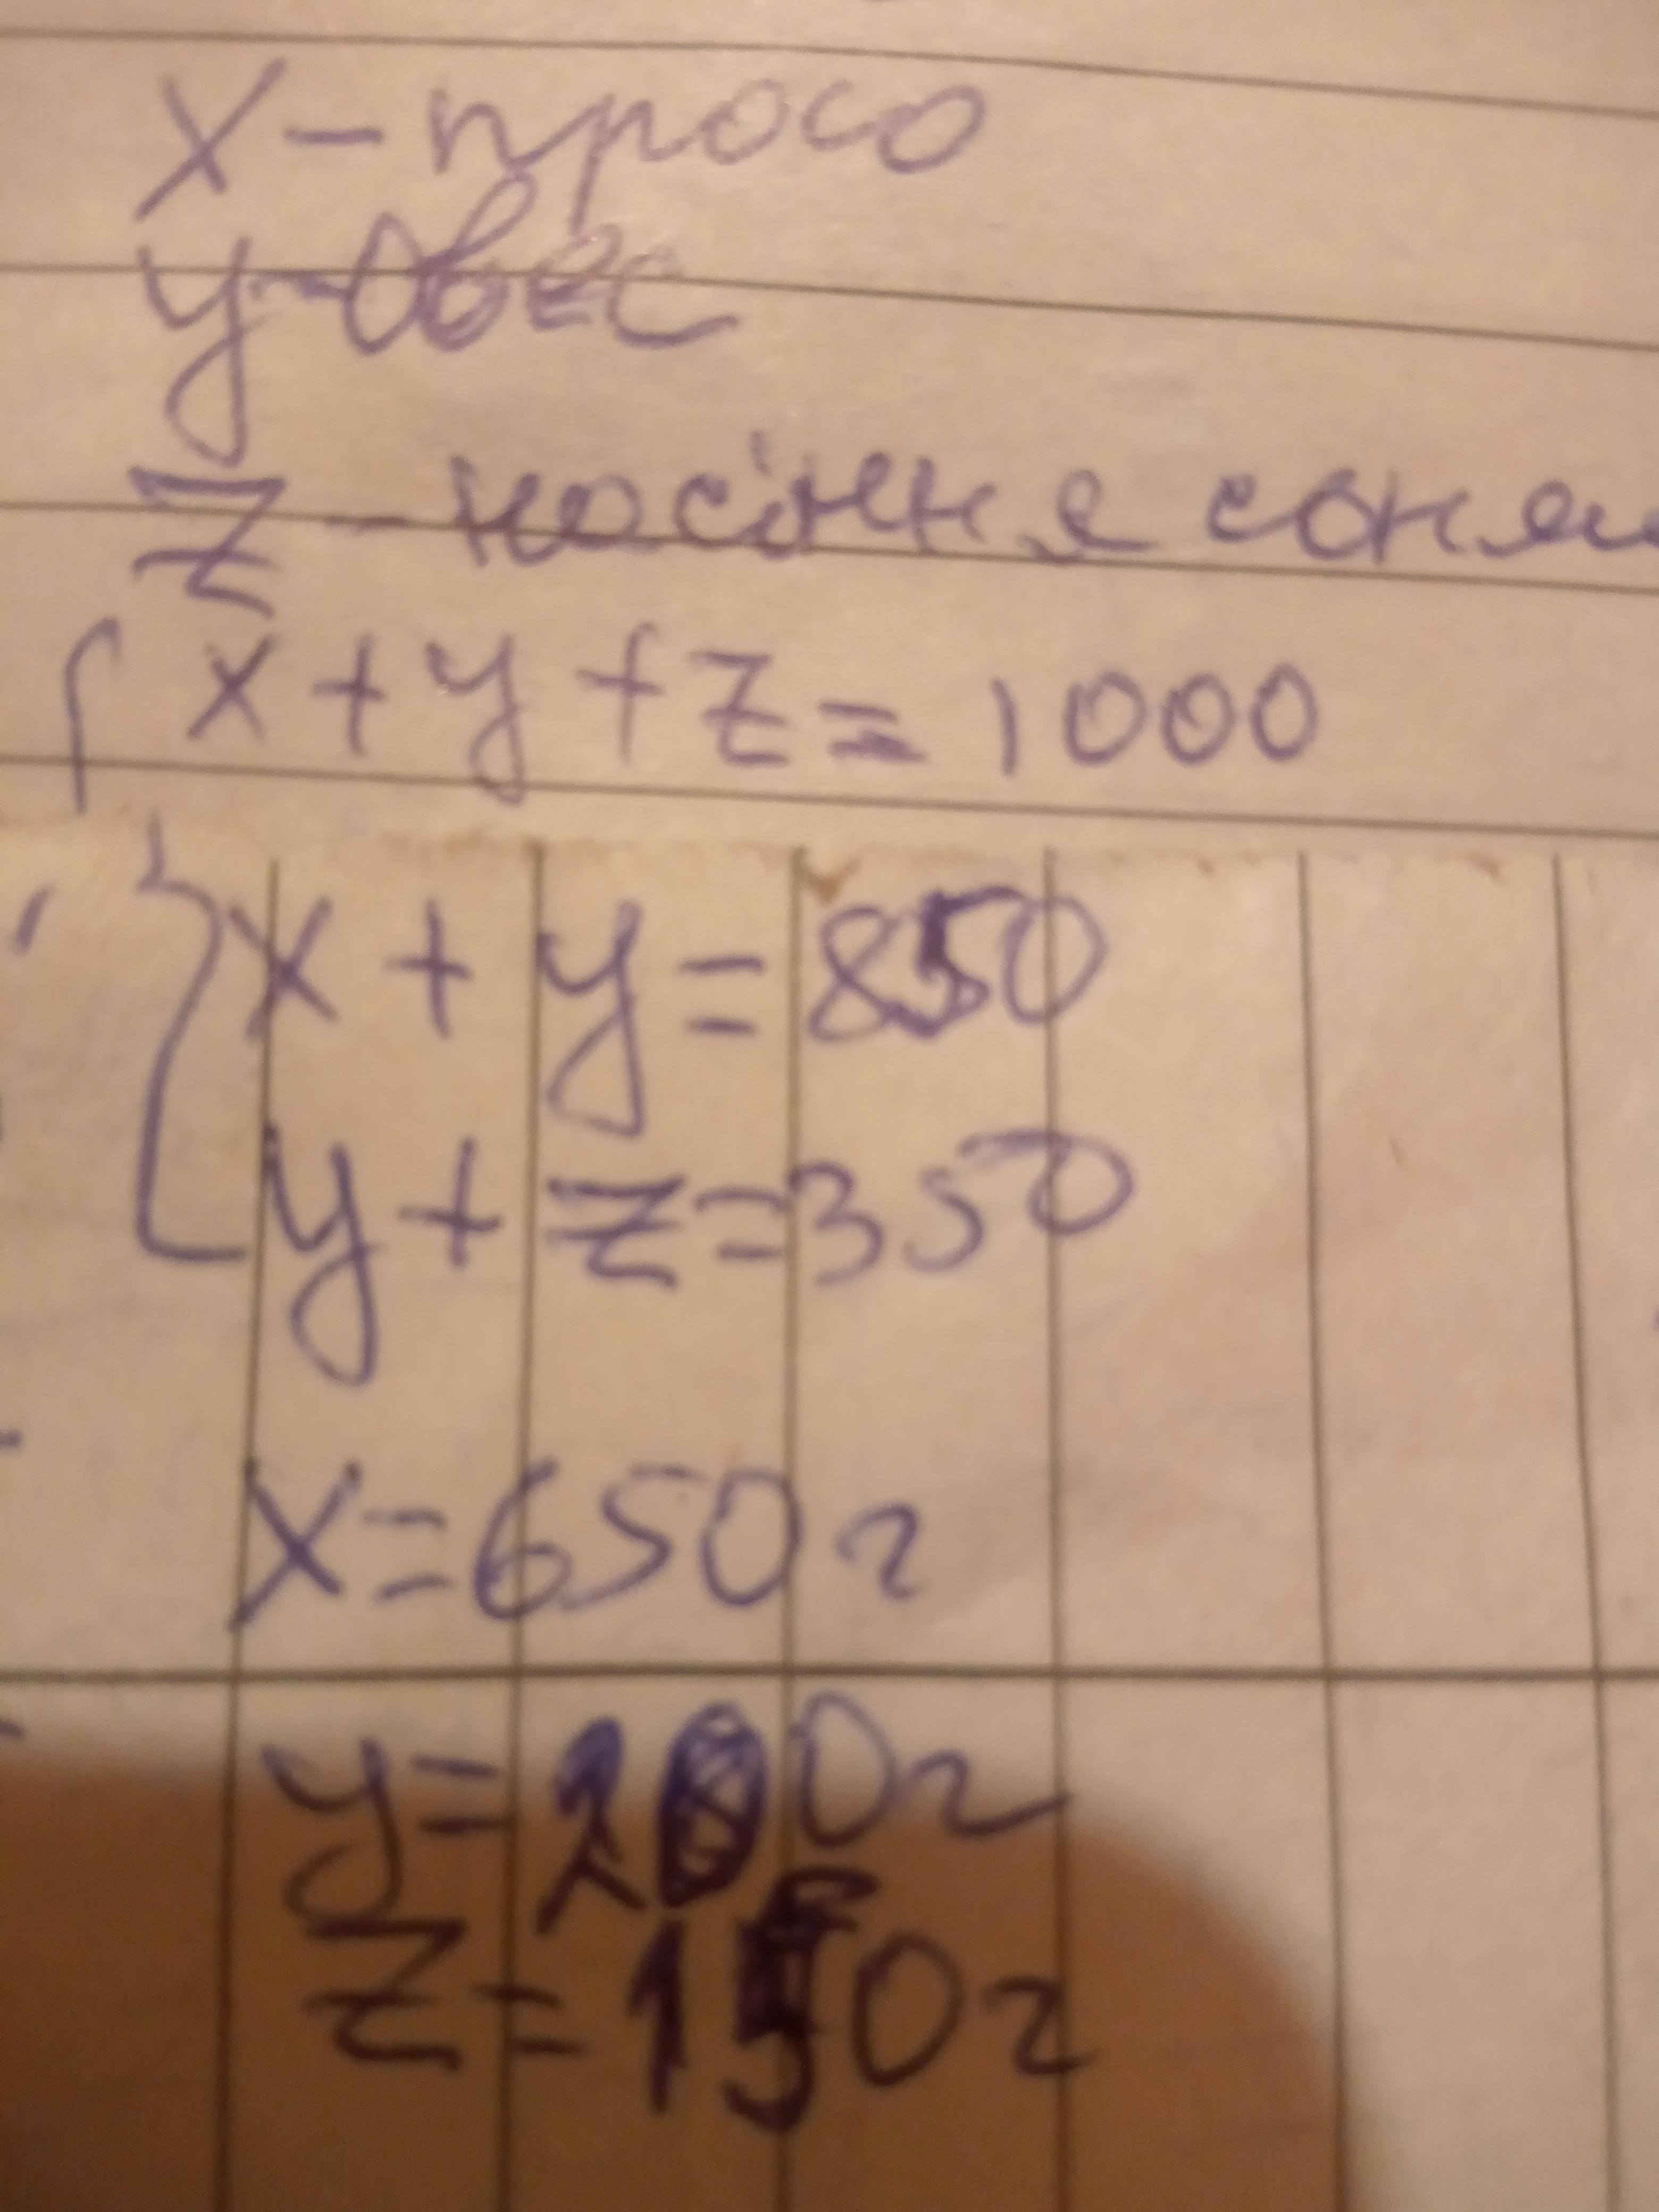 x - просо
y - овес
z - насіння
x + y + z = 1000
x + y = 850
y + z = 350
x = 650 г
y = 200 г
z = 150 г